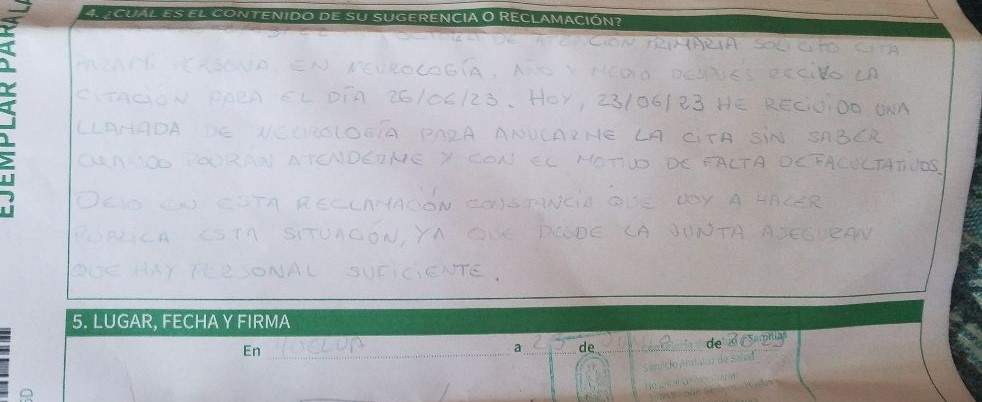 EJEMPLAR PARA LA
4. ¿CUÁL ES EL CONTENIDO DE SU SUGERENCIA O RECLAMACIÓN?
DE ATENCION PRIMARIA SOLICITO CITA
PERSONA, EN NEUROLOGÍA. AÑO Y MEDIO DESPUÉS RECIBO LA
CITACIÓN PARA EL DÍA 26/06/23. HOY, 23/06/23 HE RECIBIDO UNA
LLAMADA DE NEUROLOGÍA PARA ANULARME LA CITA SIN SABER
CUANDO PODRAN ATENDERME Y CON EL MOTIVO DE FALTA DE FACULTATIVOS.
DEJO EN ESTA RECLAMACIÓN CONSTANCIA QUE VOY A HACER
PUBLICA ESTA SITUACIÓN, YA QUE DESDE LA JUNTA ASEGURAN
QUE HAY PERSONAL SUFICIENTE.
5. LUGAR, FECHA Y FIRMA
En HUELVA a 23 de de